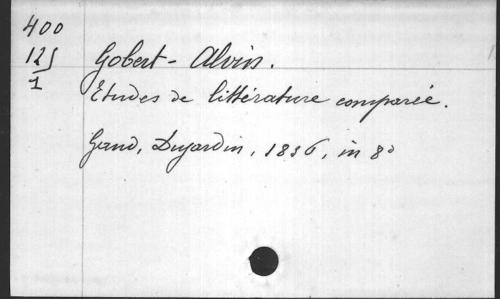 400
125
1
Gobert-Alvin.
Etudes de littérature comparée.
Gand, Dujardin, 1836, in 8º